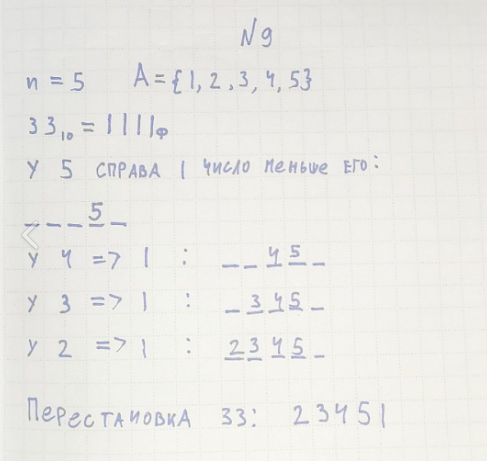 № 9
n = 5 A = {1, 2, 3, 4, 5}
33₁₀ = 1111ф
У 5 СПРАВА 1 ЧИСЛО МЕНЬШЕ ЕГО:
_ _ _ 5 _
У 4 => 1 : _ _ 4 5 _
У 3 => 1 : _ 3 4 5 _
У 2 => 1 : 2 3 4 5 _
ПЕРЕСТАНОВКА 33: 23451